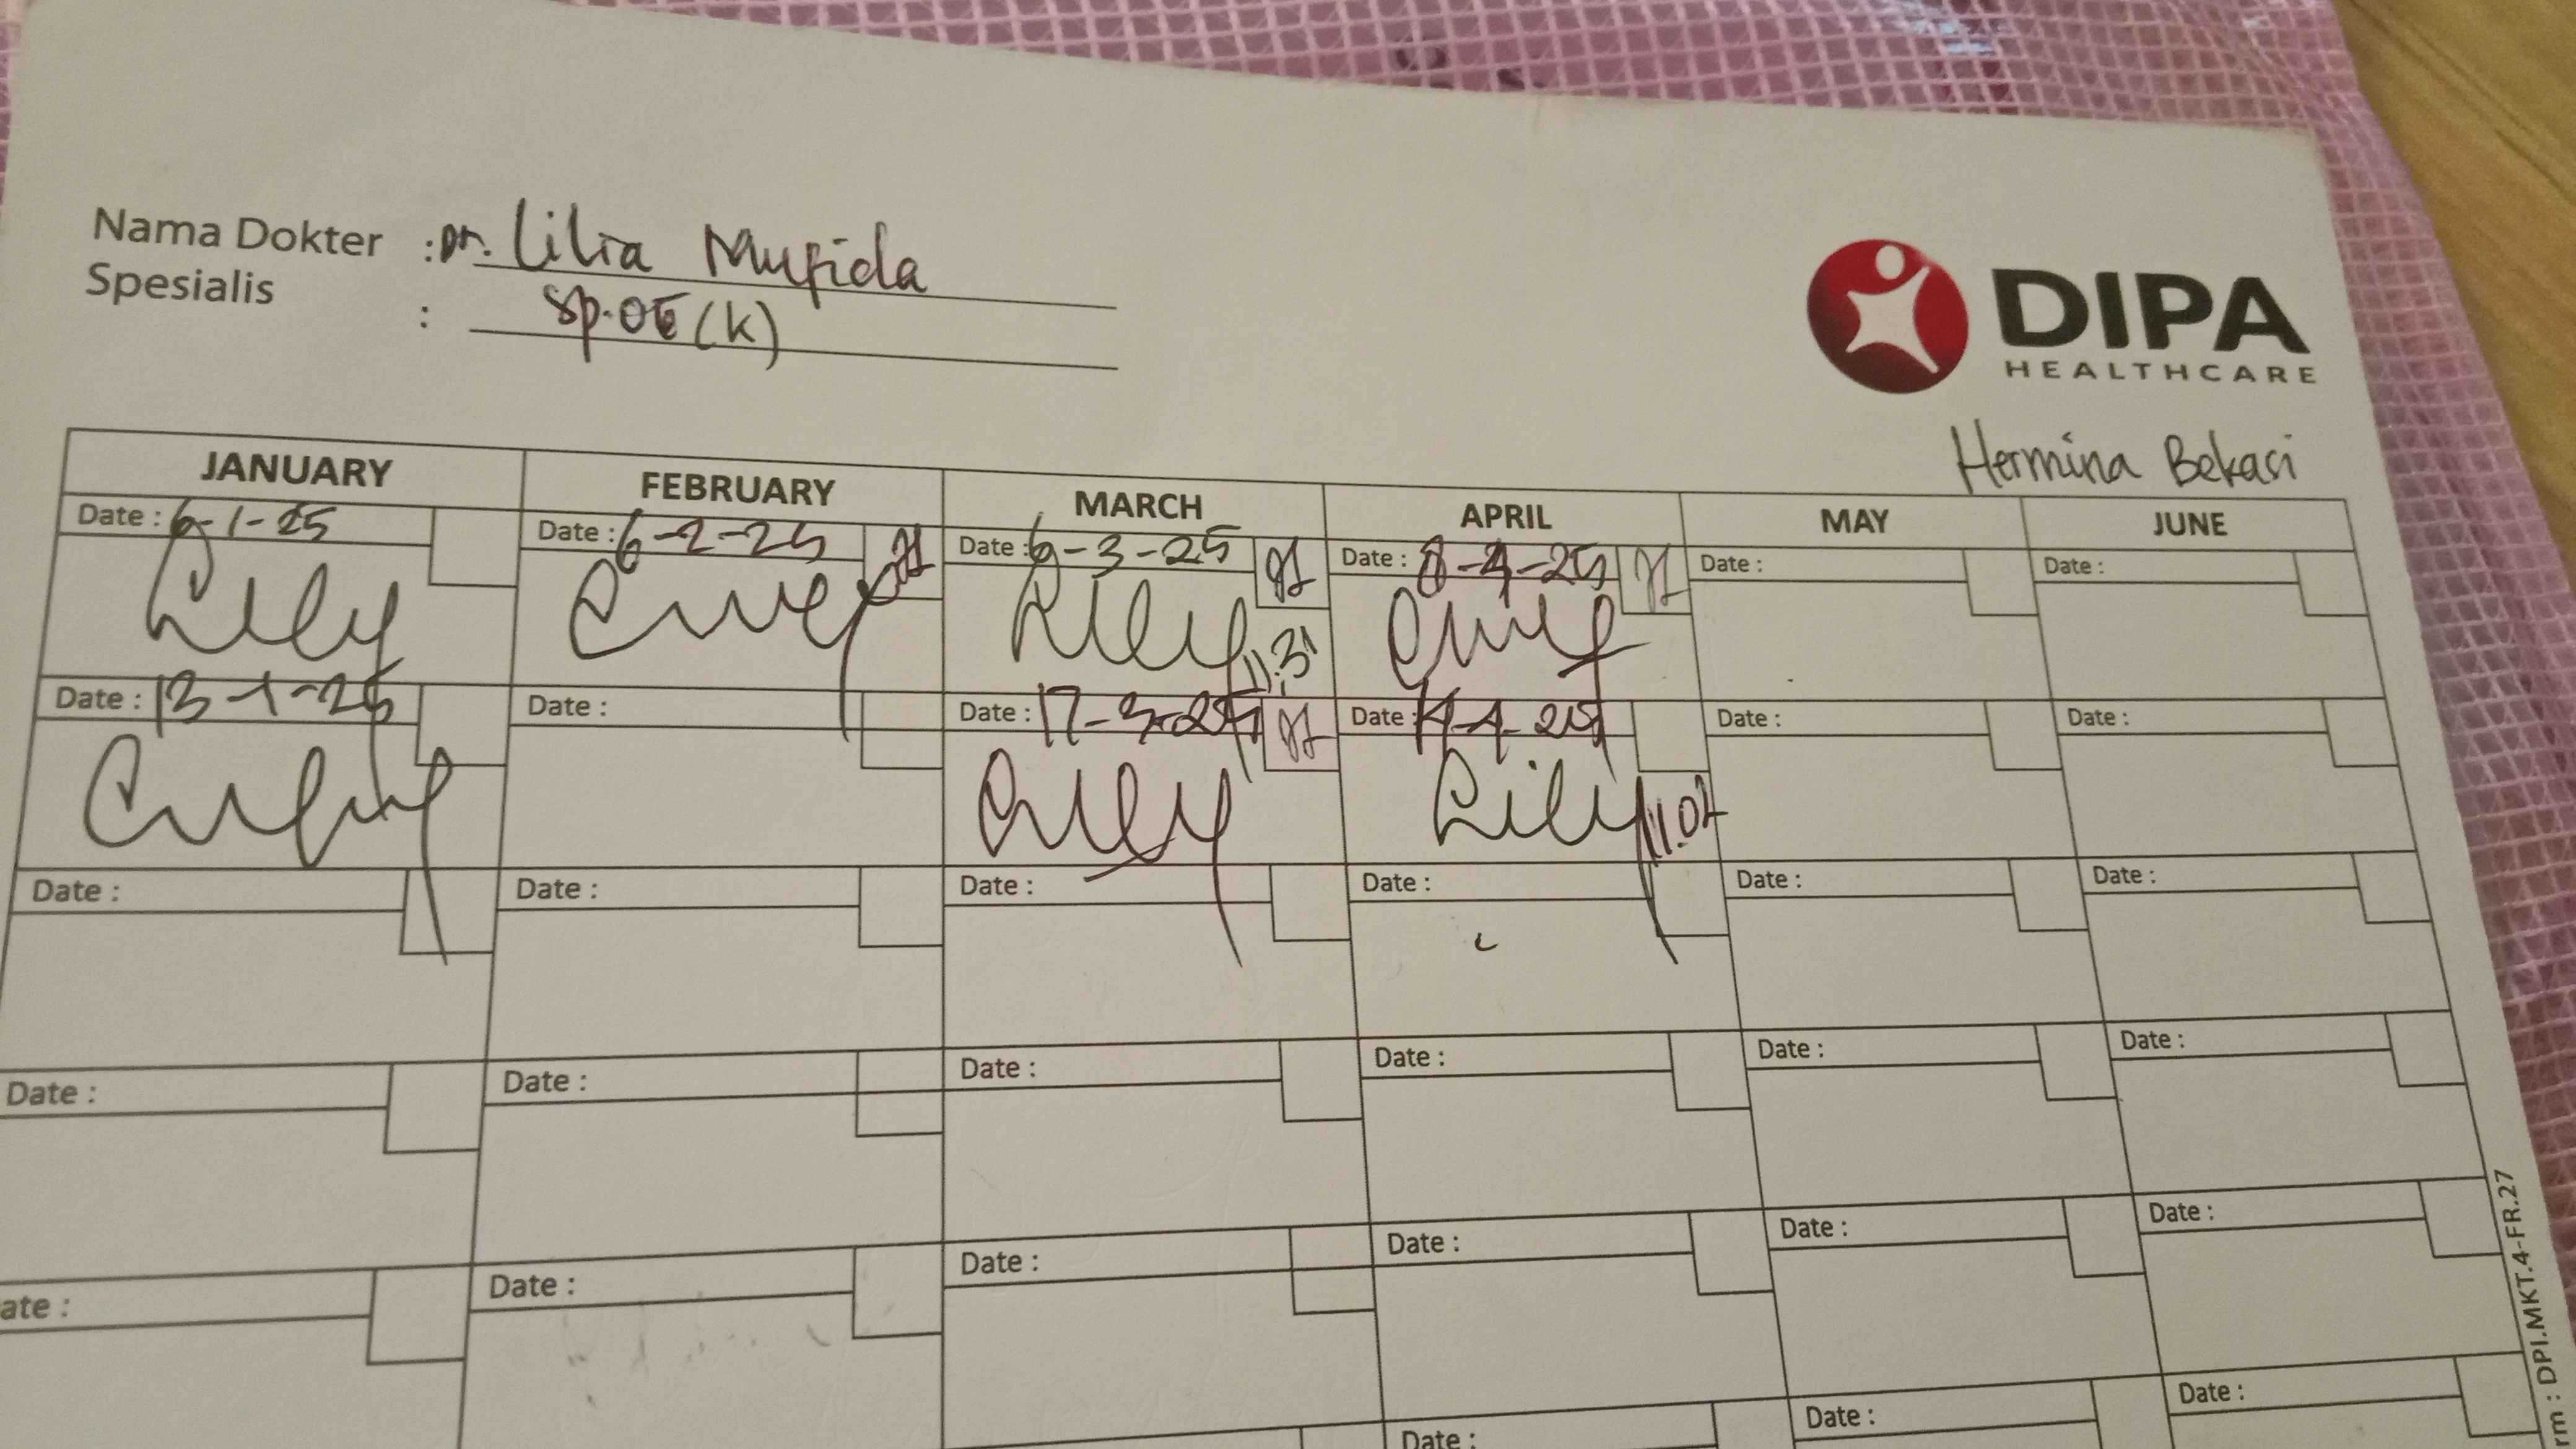 Nama Dokter : Dr. Lilia Mufida
Spesialis : Sp.OG (K)
DIPA
HEALTHCARE
Hermina Bekasi
JANUARY FEBRUARY MARCH APRIL MAY JUNE
Date : 6-1-25 Date : 6-2-25 Date : 6-3-25 Date : 8-4-25 Date : Date :
11.31
Date : 13-1-25 Date : Date : 17-3-25 Date : 14-4-25 Date : Date :
Date : Date : Date : Date : Date : Date :
Date : Date : Date : Date : Date : Date :
ate : Date : Date : Date : Date : Date :
Date : Date : Date :
rm : DPI.MKT.4-FR.27